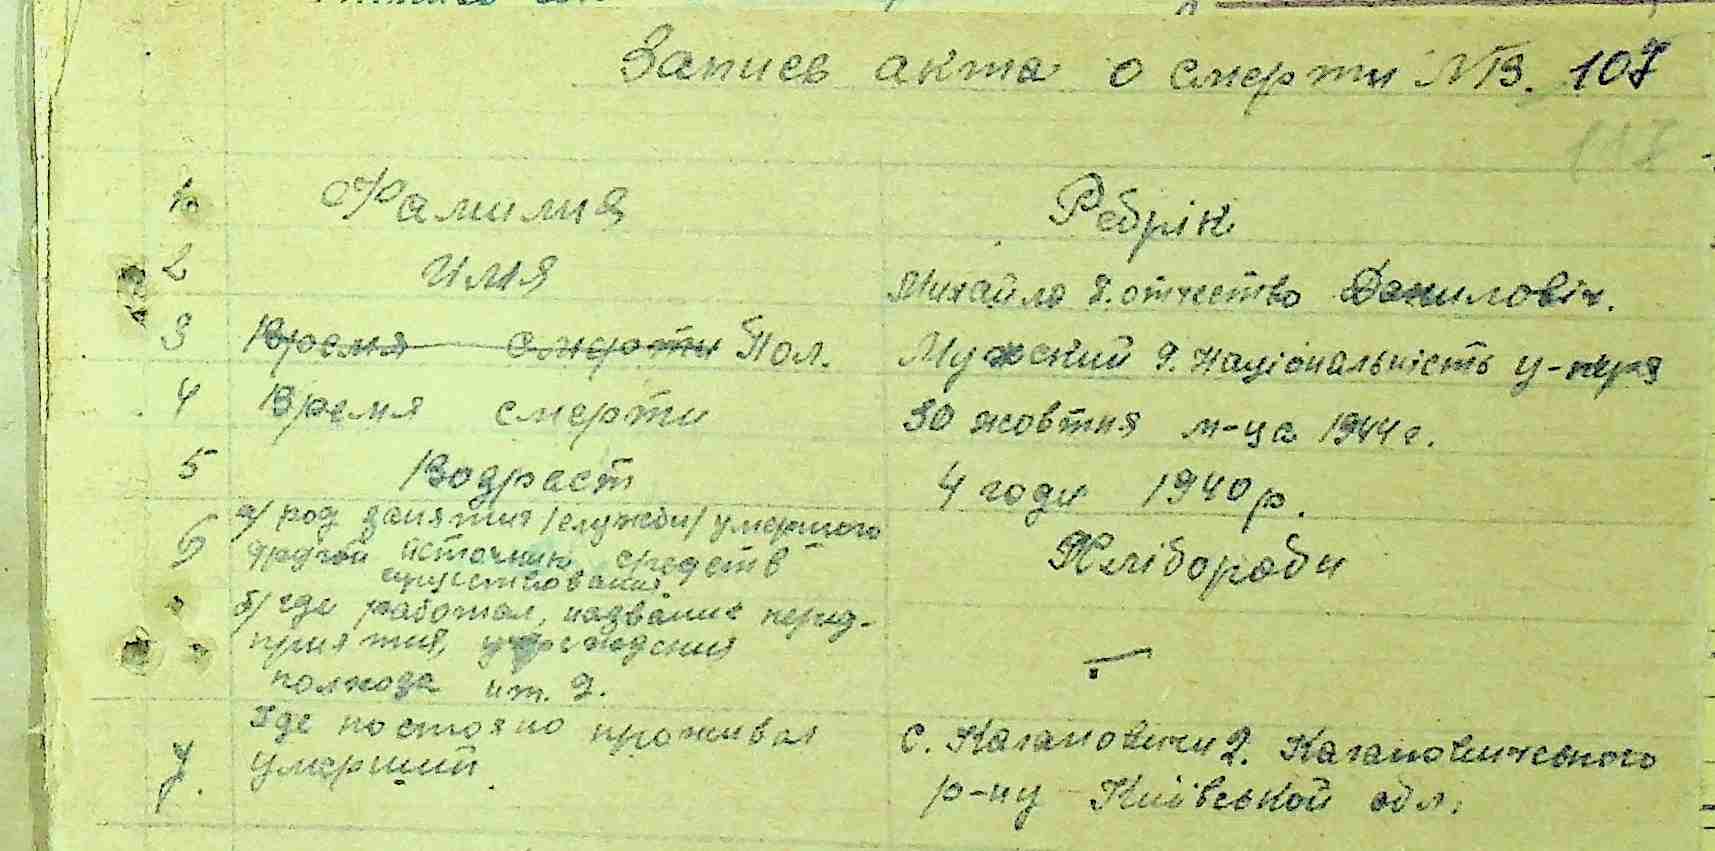 Запись акта о смерти №В. 107
1. Фамилия Ребрік
2 имя Михайло 8. отчество Данилович.
3 Время смерти Пол. Мужский 9. Національність у-нця
4 Время смерти 30 жовтня м-ца 1944 г.
5 Водраст 4 годи 1940 р.
6 а/ род занятия /служби/ умершого
другой источник средств Хлібороби
существования
б/ где работал, название перед-
приятия, учреждения —
колхоза и т. д.
Где постояно проживал с. Кагановичи 2. Кагановичевного
7. умерший р-ну Київськой обл.